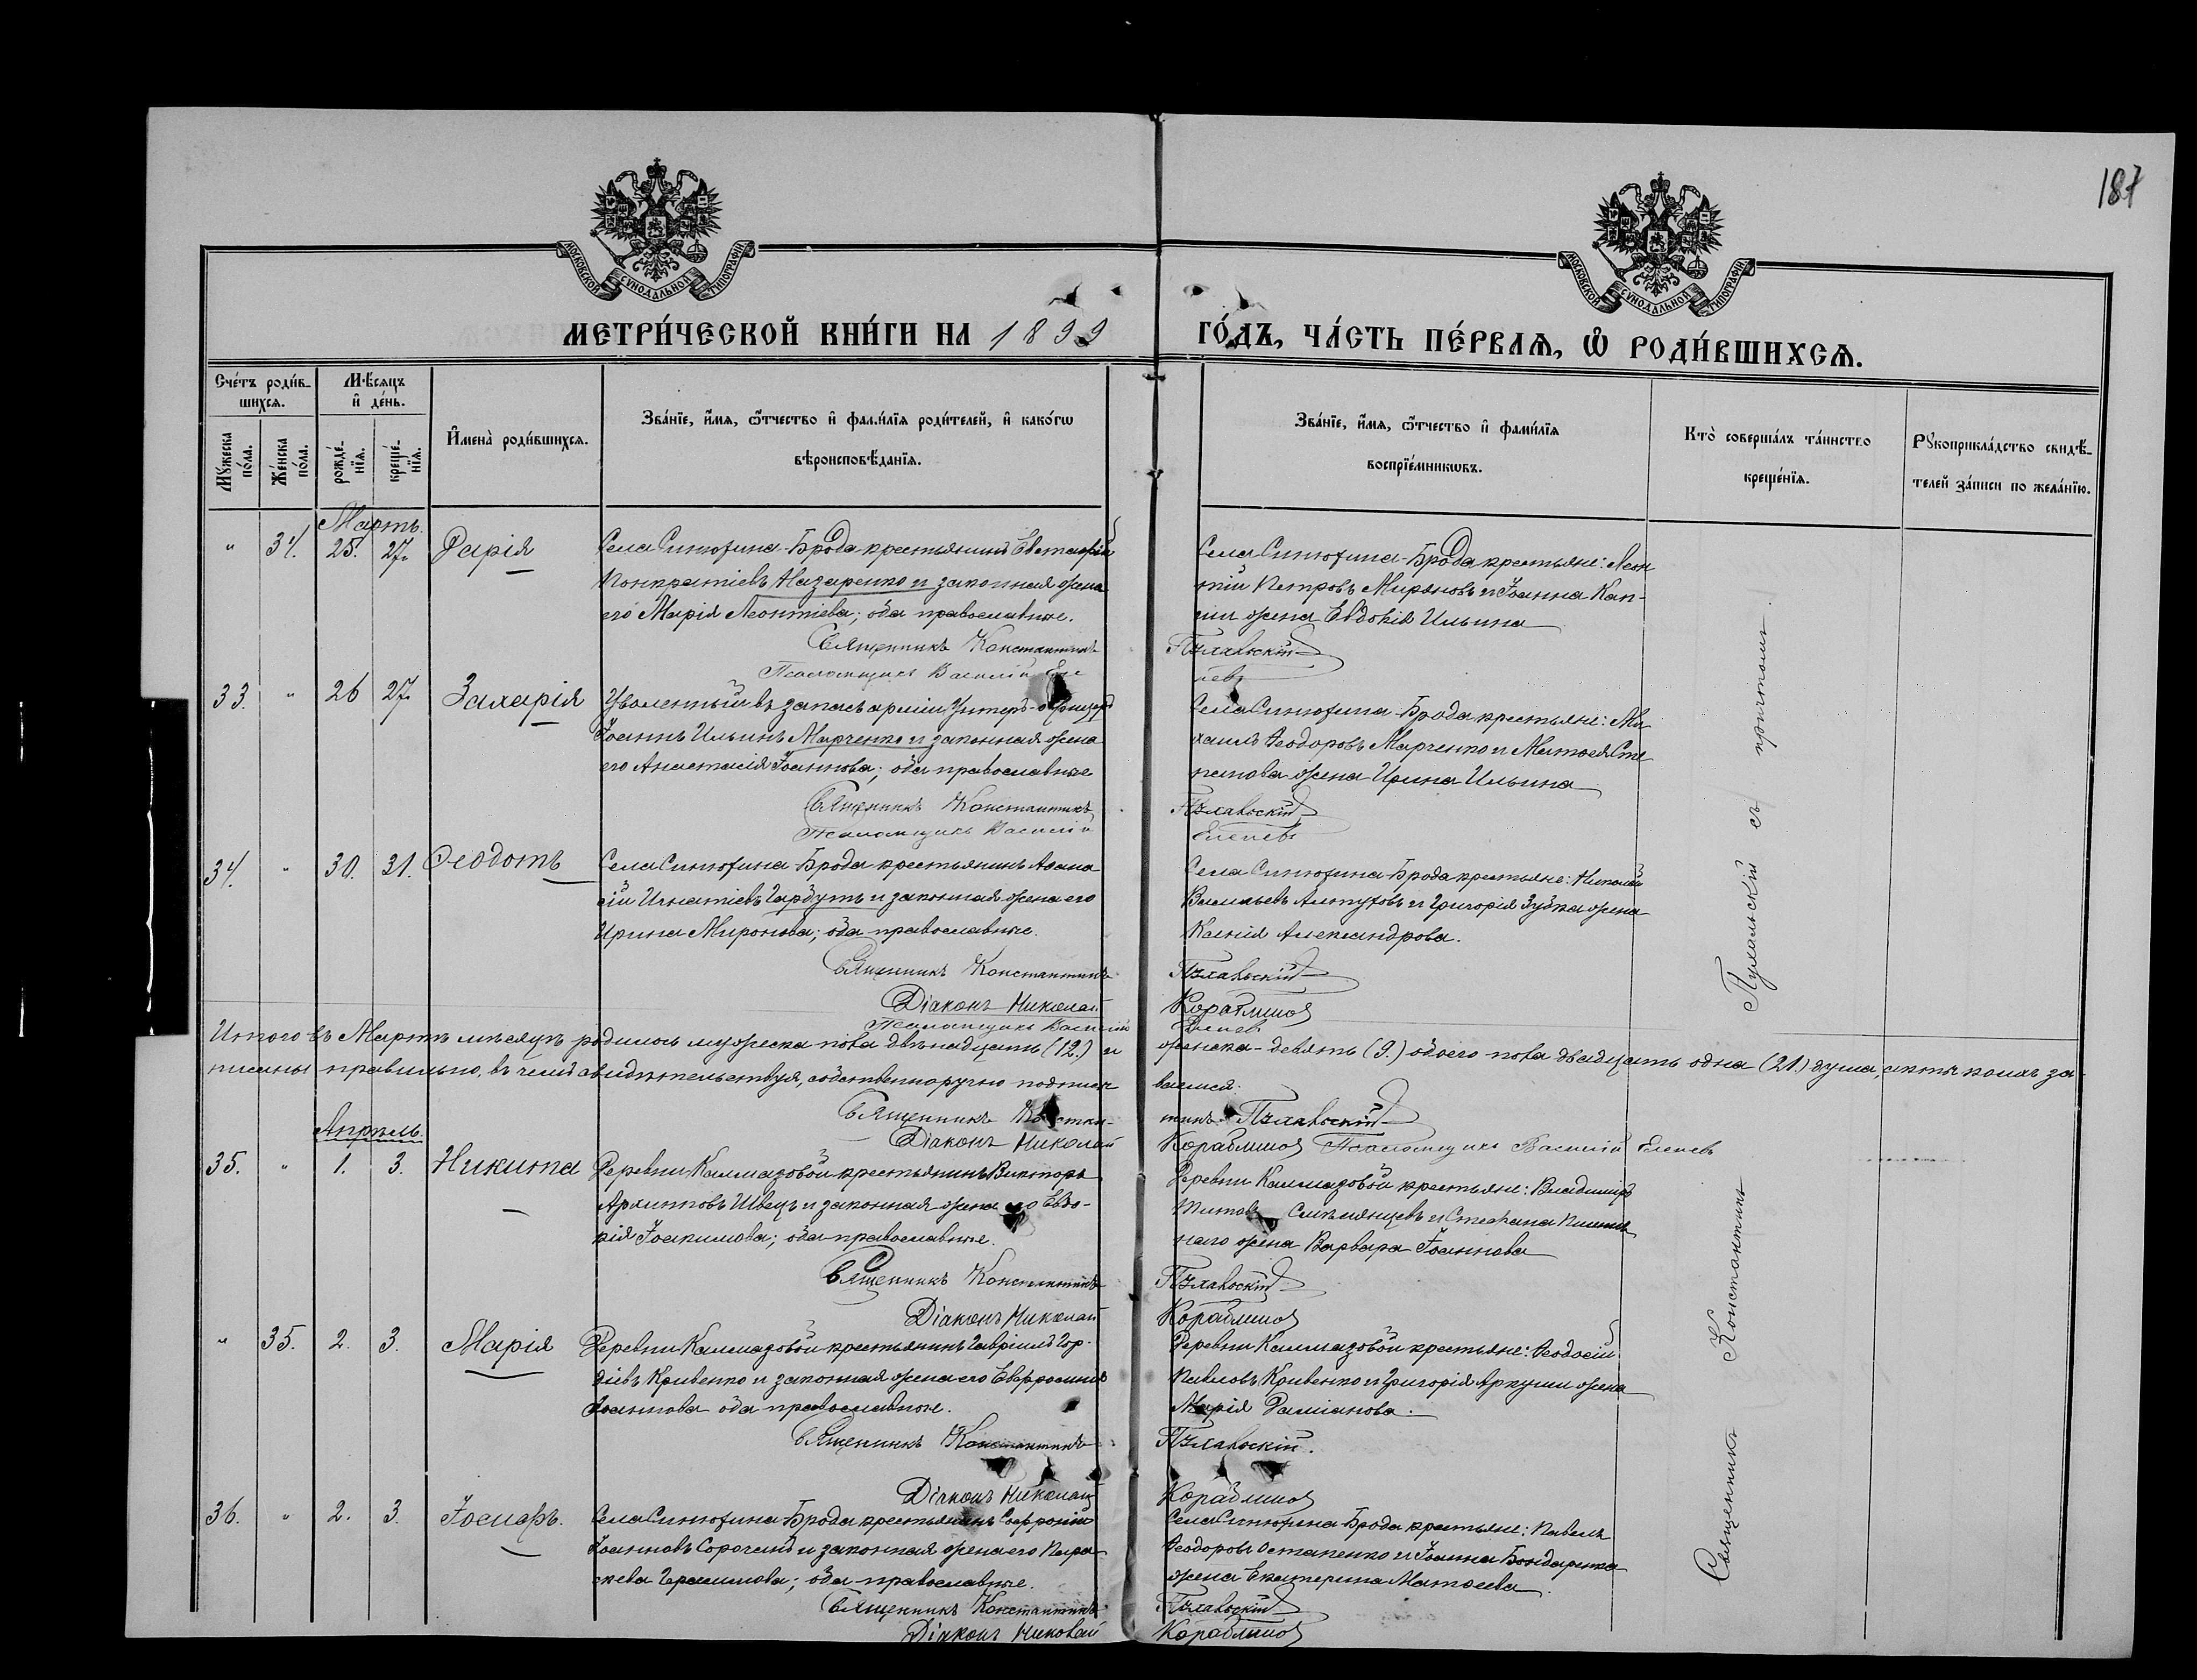 187
МОСКОВСКОЙ СѴНОДАЛЬНОЙ ТИПОГРАФІИ
МОСКОВСКОЙ СѴНОДАЛЬНОЙ ТИПОГРАФІИ
МЕТРИ́ЧЕСКОЙ КНИ́ГИ НА 1899 ГО́ДЪ, ЧА́СТЬ ПЕ́РВАѦ, Ѡ҆ РОДИ́ВШИХСѦ.
Сче́тъ роди́в-
шихсѧ.
Мѣ́сѧцъ
и҆ де́нь.
Мꙋ́жеска по́ла.
Же́нска по́ла.
рожде́-
нїѧ.
креще́-
нїѧ.
И҆мена̀ роди́вшихсѧ.
Зва́нїе, и҆́мѧ, ѻ҆́тчество и҆ фами́лїѧ роди́телей, и҆ како́гѡ
вѣроисповѣ́данїѧ.
Зва́нїе, и҆́мѧ, ѻ҆́тчество и҆ фами́лїѧ
воспрїе́мникѡвъ.
Кто̀ соверша́лъ та́инство
креще́нїѧ.
Рꙋкоприкла́дство свидѣ́-
телей за́писи по жела́нїю.
Мартъ.
" 34. 25. 27. Дарія
Села Синюхина-Брода крестьянинъ Евстафій
Понкратіевъ Назаренко и законная жена
его Марія Леонтіева; оба православные.
Священникъ Константинъ
Псаломщикъ Василій
Села Синюхина-Брода крестьяне: Леон
тій Петровъ Мироновъ и Іоанна Кап-
жена Евдокія Ильина
33. " 26 27. Захарія
Уволенный въ запасъ арміи Унтеръ-офицеръ
Іоаннъ Ильинъ Марченко и законная жена
его Анастасія Іоаннова; оба православные
Священникъ Константинъ
Псаломщикъ Василій
Села Синюхина-Брода крестьяне: Ми
хаилъ Ѳеодоровъ Марченко и Матѳея Сте
панова жена Ирина Ильина
Елепевъ
34. " 30. 31. Ѳеодотъ
Села Синюхина-Брода крестьянинъ Аѳана
сій Игнатіевъ Гарбузъ и законная жена его
Ирина Миронова; оба православные.
Священникъ Константинъ
Діаконъ Николай
Псаломщикъ Василій
Села Синюхина-Брода крестьяне: Николай
Васильевъ и Григорія Зубка жена
Ксенія Александрова.
Кораблиновъ
Елепевъ
Итого въ Мартѣ мѣсяцѣ родилось мужеска пола двѣнадцать (12.) и женска-девять (9.) обоего пола двадцать одна (21.) душа, акты коихъ за-
писаны правильно, въ чемъ свидѣтельствуя, собственноручно подписы ваемся.
Священникъ Констан- тинъ
Діаконъ Николай Кораблиновъ Псаломщикъ Василій Елепевъ
Апрѣль.
35. " 1. 3. Никита
Деревни Камазовой крестьянинъ Викторъ
Архиповъ Швецъ и законная жена его Евдо-
кія Іоакимова; оба православные.
Священникъ Константинъ
Діаконъ Николай
Деревни Камазовой крестьяне: Владиміръ
Титовъ и Стефана
жена Варвара Іоаннова
Кораблиновъ
" 35. 2. 3. Марія
Деревни Камазовой крестьянинъ Гавріилъ Гор-
діевъ Кривенко и законная жена его Евфросинія
Іоаннова оба православные.
Священникъ Константинъ
Діаконъ Николай
Деревни Камазовой крестьяне: Ѳеодосій
Павловъ Кривенко и Григорія Аркуши жена
Марія Даміанова.
Кораблиновъ
36. " 2. 3. Іосифъ.
Села Синюхина-Брода крестьянинъ Софроній
Іоанновъ Сорочанъ и законная жена его Пара
скева Герасимова; оба православные.
Священникъ Константинъ
Діаконъ Николай
Села Синюхина-Брода крестьяне: Павелъ
Ѳеодоровъ Остапенко и Іоанна Бондаренка
жена Екатерина Матѳеева
Кораблиновъ
Священникъ Константинъ съ причтомъ.